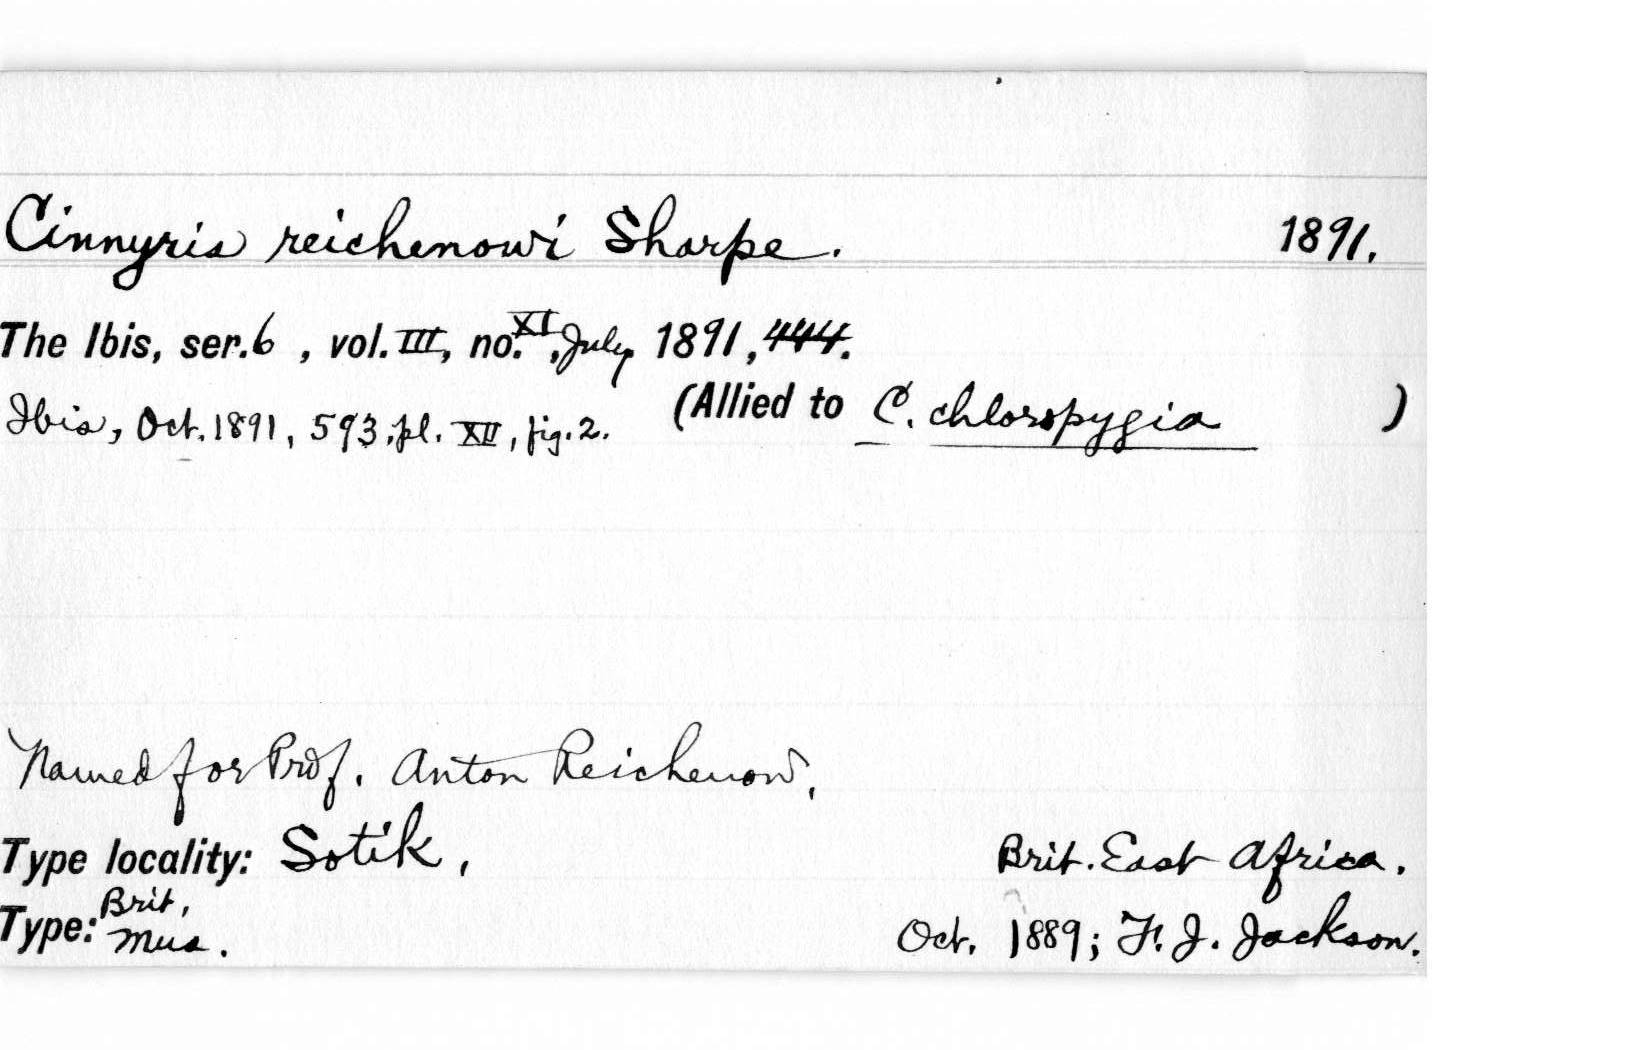 Cinnyris reichenowi Sharpe. 1891.
The Ibis, ser. 6 , vol. III, no. XI, July 1891, 444.
Ibis, Oct. 1891, 593, pl. XII, fig. 2. (Allied to C. chloropygia )
Named for Prof. Anton Reichenow,
Type locality: Sotik, Brit. East Africa.
Type: Brit. Mus. Oct. 1889; F. J. Jackson.